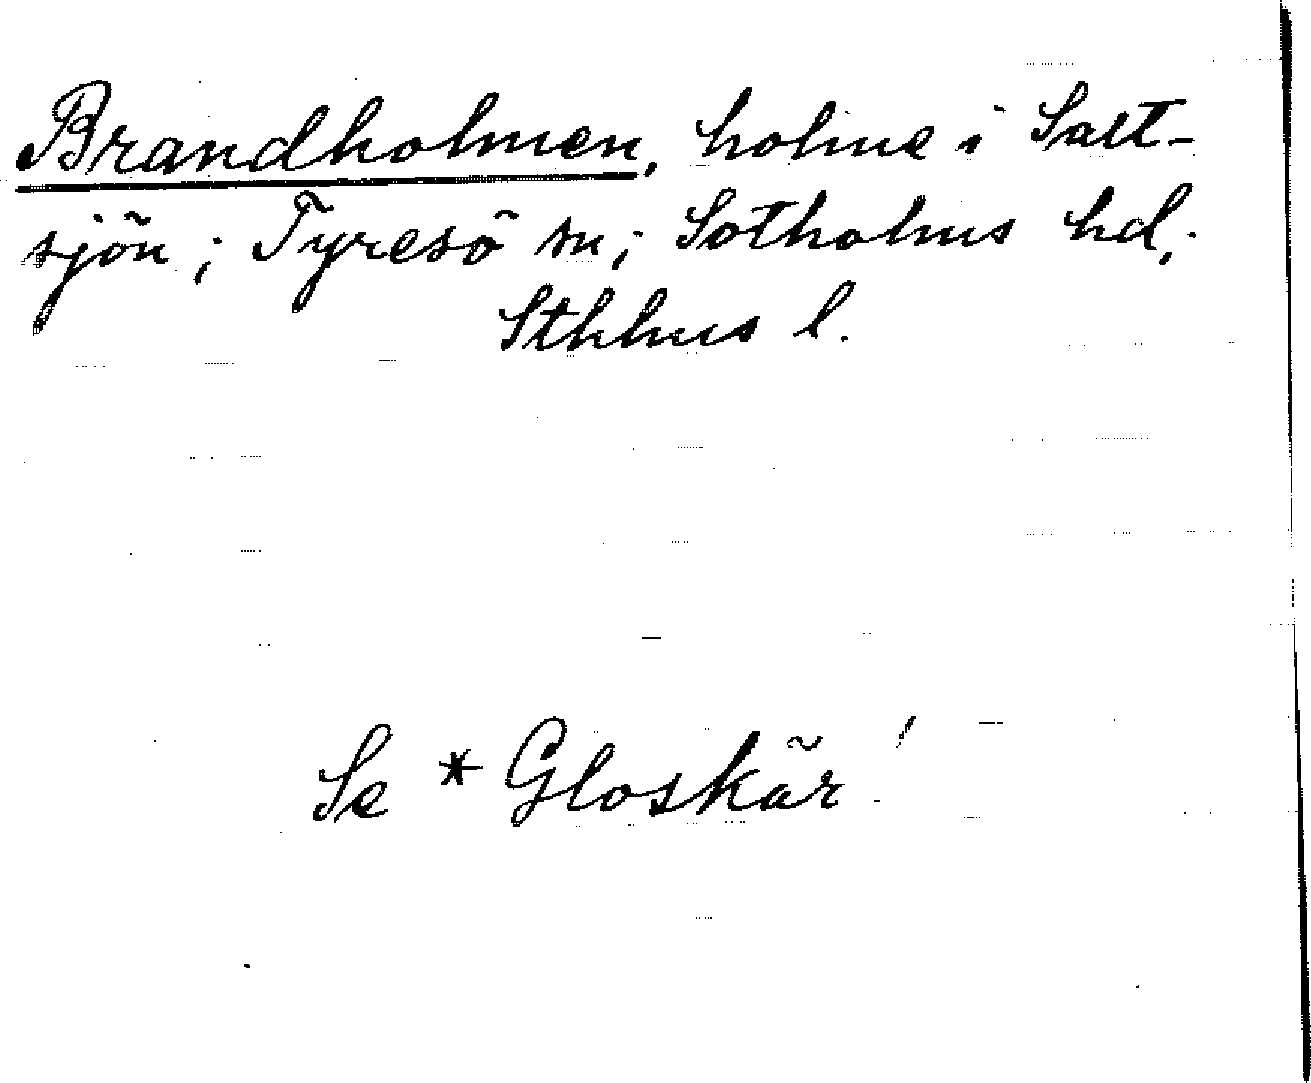 Brandholmen, holme i Salt-
sjön; Tyresö sn; Sotholms hd;
Sthlms l.
Se *Gloskär!